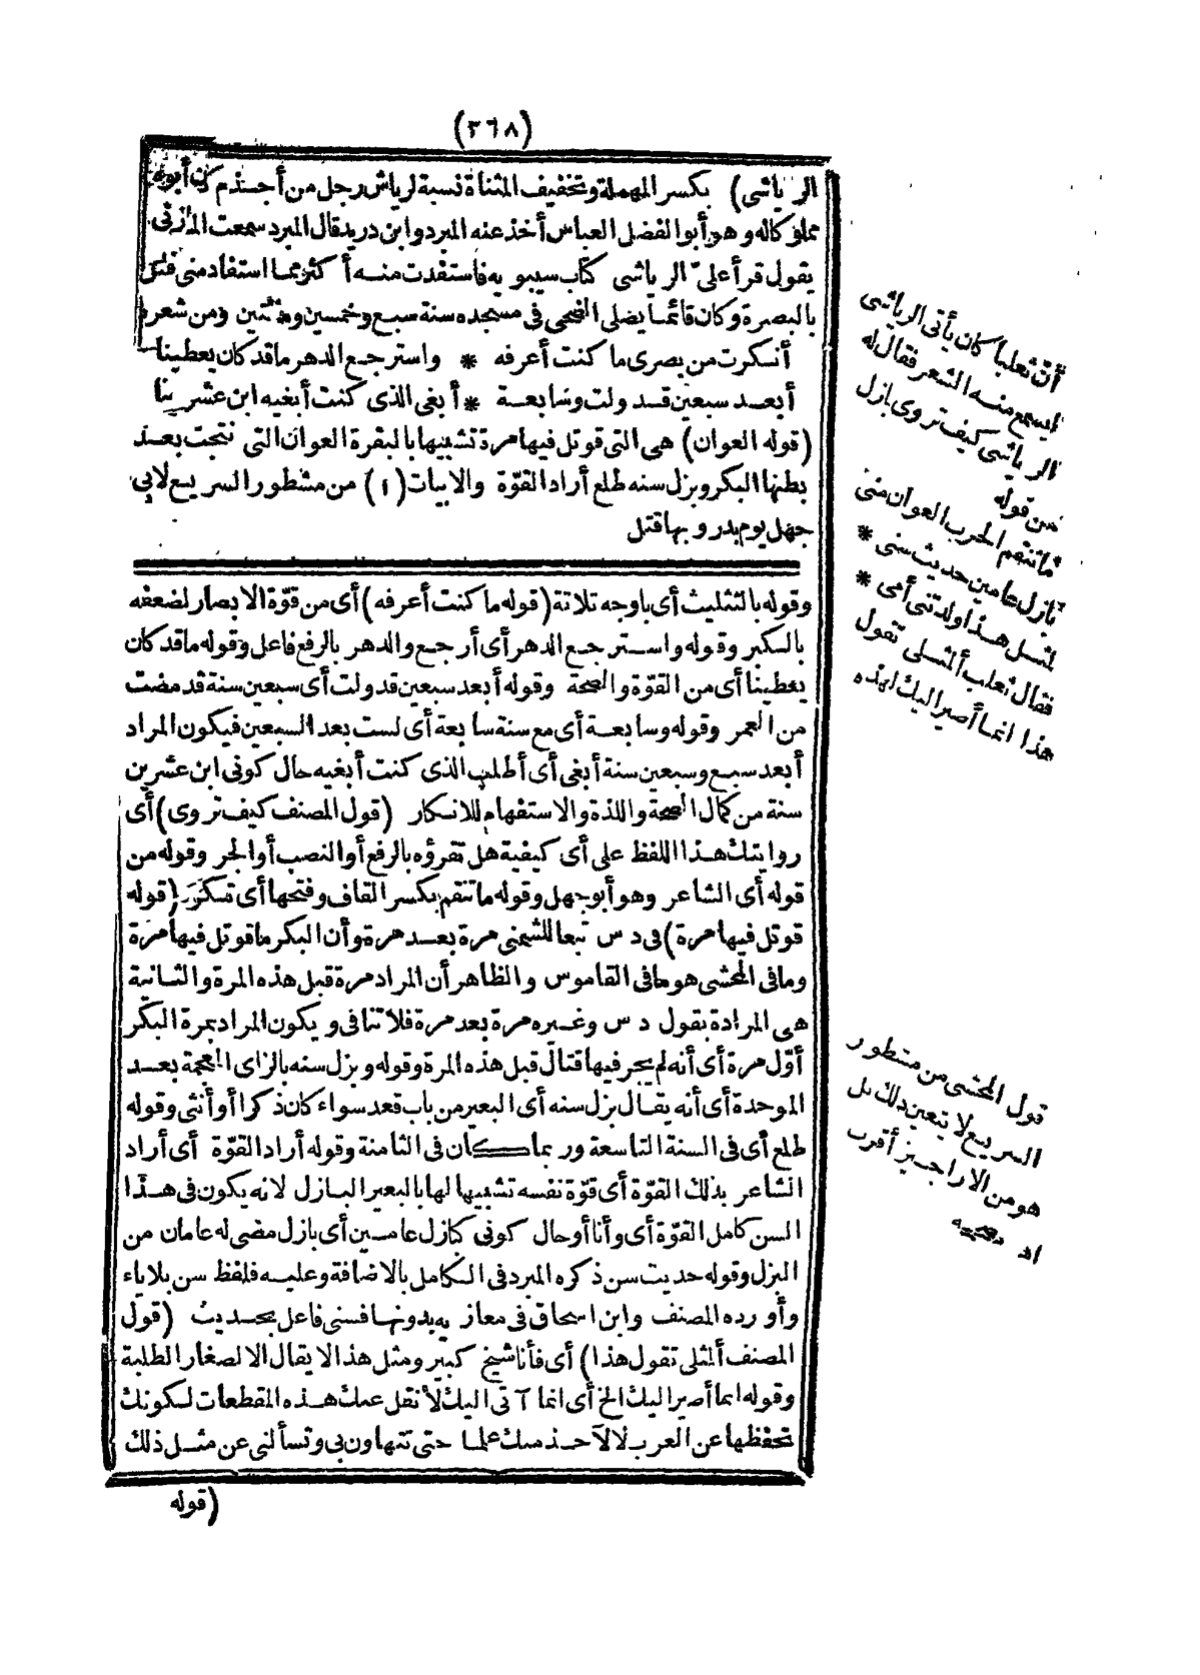 (٣٦٨)
الرياشى) بكسر المهملة وتخفيف المثناة نسبة لرياش رجل من أجذم كان أبوه
مملوكاله وهو أبو الفضل العباس أخذ عنه المبرد وابن دريد قال المبرد سمعت المازنى
يقول قرأ علىّ الرياشى كتاب سيبويه فاستفدت منه أكثر مما استفاد منى قتل
بالبصرة وكان قائما يصلى الضحى فى مسجده سنة سبع وخمسين ومئتين ومن شعره
أنكرت من بصرى ما كنت أعرفه * واسترجع الدهر ما قد كان يعطينا
أبعد سبعين قد ولت وسابعة * أبغى الذى كنت أبغيه ابن عشرينا
(قوله العوان) هى التى قوتل فيها مرة تشبيها بالبقرة العوان التى نتجت بعد
بطنها البكر وبزل سنه طلع أراد القوّة والابيات (١) من مشطور السريع لابى
جهل يوم بدر وبها قتل
وقوله بالتثليث أى باوجه ثلاثة (قوله ما كنت أعرفه) أى من قوّة الابصار لضعفه
بالكبر وقوله واسترجع الدهر أى أرجع والدهر بالرفع فاعل وقوله ما قد كان
يعطينا أى من القوّة والصحة وقوله أبعد سبعين قد ولت أى سبعين سنة قد مضت
من العمر وقوله وسابعة أى مع سنة سابعة أى لست بعد السبعين فيكون المراد
أبعد سبع وسبعين سنة أبغى أى أطلب الذى كنت أبغيه حال كونى ابن عشرين
سنة من كمال الصحة واللذة والاستفهام للانكار (قول المصنف كيف تروى) أى
روايتك هذا اللفظ على أى كيفية هل تقرؤه بالرفع أو النصب أو الجر وقوله من
قوله أى الشاعر وهو أبو جهل وقوله ما تنقم بكسر القاف وفتحها أى تكره (قوله
قوتل فيها مرة) فى د س تبعا للشمنى مرة بعد مرة وأن البكر ما قوتل فيها مرة
وما فى المحشى هو ما فى القاموس والظاهر أن المراد مرة قبل هذه المرة والثانية
هى المرادة بقول د س وغيره مرة بعد مرة فلا تنافى ويكون المراد بمرة البكر
أوّل مرة أى أنه لم يجر فيها قتال قبل هذه المرة وقوله وبزل سنه بالزاى المعجمة بعد
الموحدة أى أنه يقال بزل سنه أى البعير من باب قعد سواء كان ذكرا أو أنثى وقوله
طلع أى فى السنة التاسعة وربما كان فى الثامنة وقوله أراد القوّة أى أراد
الشاعر بذلك القوّة أى قوّة نفسه تشبيها لها بالبعير البازل لانه يكون فى هذا
السن كامل القوّة أى وأنا أو حال كونى كبازل عامين أى بازل مضى له عامان من
البزل وقوله حديث سن ذكره المبرد فى الكامل بالاضافة وعليه فلفظ سن بلا ياء
وأورده المصنف وابن اسحاق فى مغازيه بدونها فسنى فاعل بحديث (قول
المصنف ألمثلى تقول هذا) أى فأنا شيخ كبير ومثل هذا لا يقال الا لصغار الطلبة
وقوله انما أصير اليك الخ أى انما آتى اليك لأنقل عنك هذه المقطعات لكونك
تحفظها عن العرب لا لآخذ منك علما حتى تتهاون بى وتسألنى عن مثل ذلك
(قوله
أن ثعلبا كان يأتى الرياشى
ليسمع منه الشعر فقال له
الرياشى كيف تروى بازل
من قوله
ما تنقم الحرب العوان منى
بازل عامين حديث سنى *
لمثل هذا ولدتنى أمى *
فقال ثعلب ألمثلى تقول
هذا انما أصير اليك لهذه
قول المحشى من مشطور
السريع لا يتعين ذلك بل
هو من الاراجيز أقرب
اه مصححه